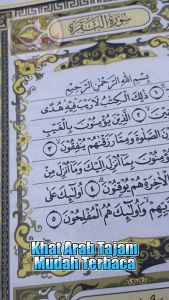 سُورَةُ الْبَقَرَةِ
بِسْمِ اللهِ الرَّحْمٰنِ الرَّحِيْمِ
ذٰلِكَ الْكِتٰبُ لَا رَيْبَ فِيْهِ هُدًى
٢ الَّذِيْنَ يُؤْمِنُوْنَ بِالْغَيْبِ
الصَّلٰوةَ وَمِمَّا رَزَقْنٰهُمْ يُنْفِقُوْنَ ٣
بِمَآ اُنْزِلَ اِلَيْكَ وَمَآ اُنْزِلَ مِنْ
الْاٰخِرَةِ هُمْ يُوْقِنُوْنَ ٤ اُولٰۤىِٕكَ عَلٰى
وَاُولٰۤىِٕكَ هُمُ الْمُفْلِحُوْنَ ٥
Khat Arab Tajam
Mudah Terbaca